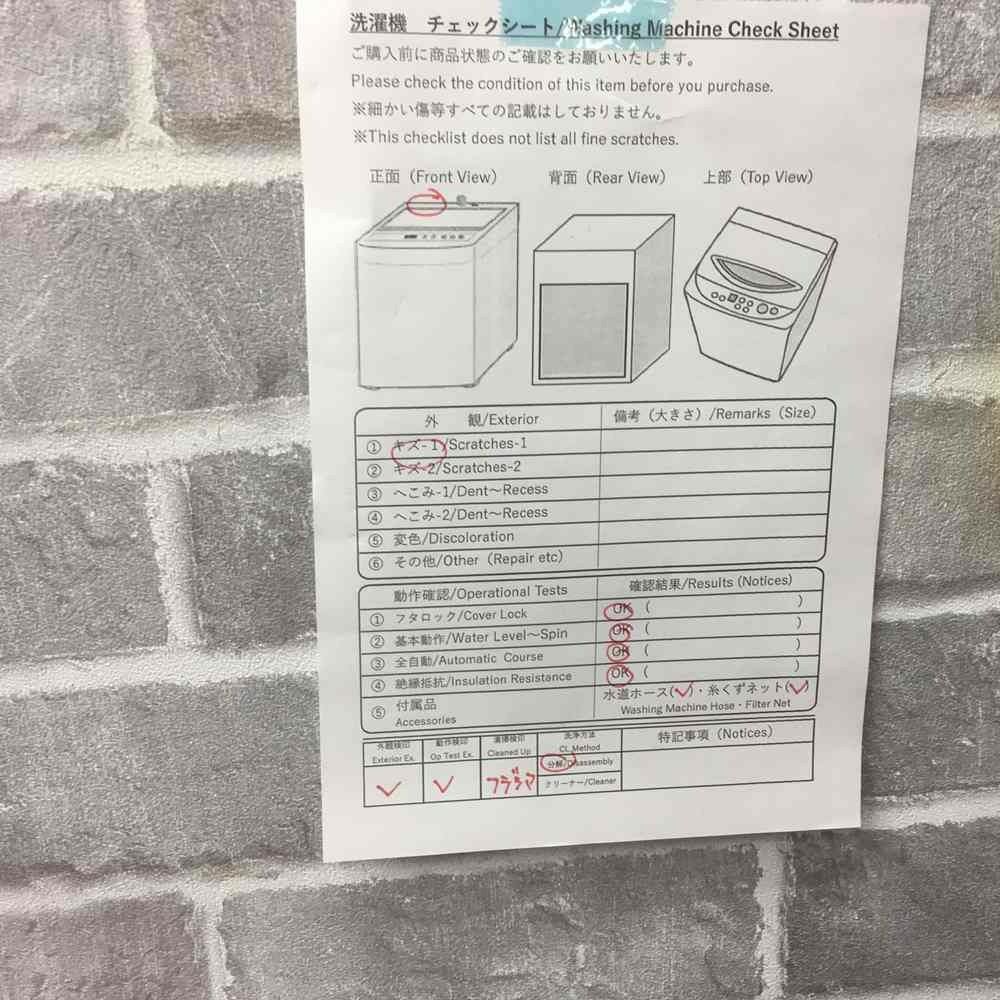 洗濯機 チェックシート/Washing Machine Check Sheet
ご購入前に商品状態のご確認をお願いいたします。
Please check the condition of this item before you purchase.
※細かい傷等すべての記載はしておりません。
※This checklist does not list all fine scratches.
正面（Front View） 背面（Rear View） 上部（Top View）
外 観/Exterior 備考（大きさ）/Remarks（Size）
① キズ-1/Scratches-1
② キズ-2/Scratches-2
③ へこみ-1/Dent～Recess
④ へこみ-2/Dent～Recess
⑤ 変色/Discoloration
⑥ その他/Other（Repair etc）
動作確認/Operational Tests 確認結果/Results（Notices）
① フタロック/Cover Lock OK （ ）
② 基本動作/Water Level～Spin OK （ ）
③ 全自動/Automatic Course OK （ ）
④ 絶縁抵抗/Insulation Resistance OK （ ）
⑤ 付属品 水道ホース(✓)・糸くずネット(✓)
Accessories Washing Machine Hose・Filter Net
外観検印 動作検印 清掃検印 洗浄方法 特記事項（Notices）
Exterior Ex. Op Test Ex. Cleaned Up CL Method
分解/Disassembly
✓ ✓ クリーナー/Cleaner